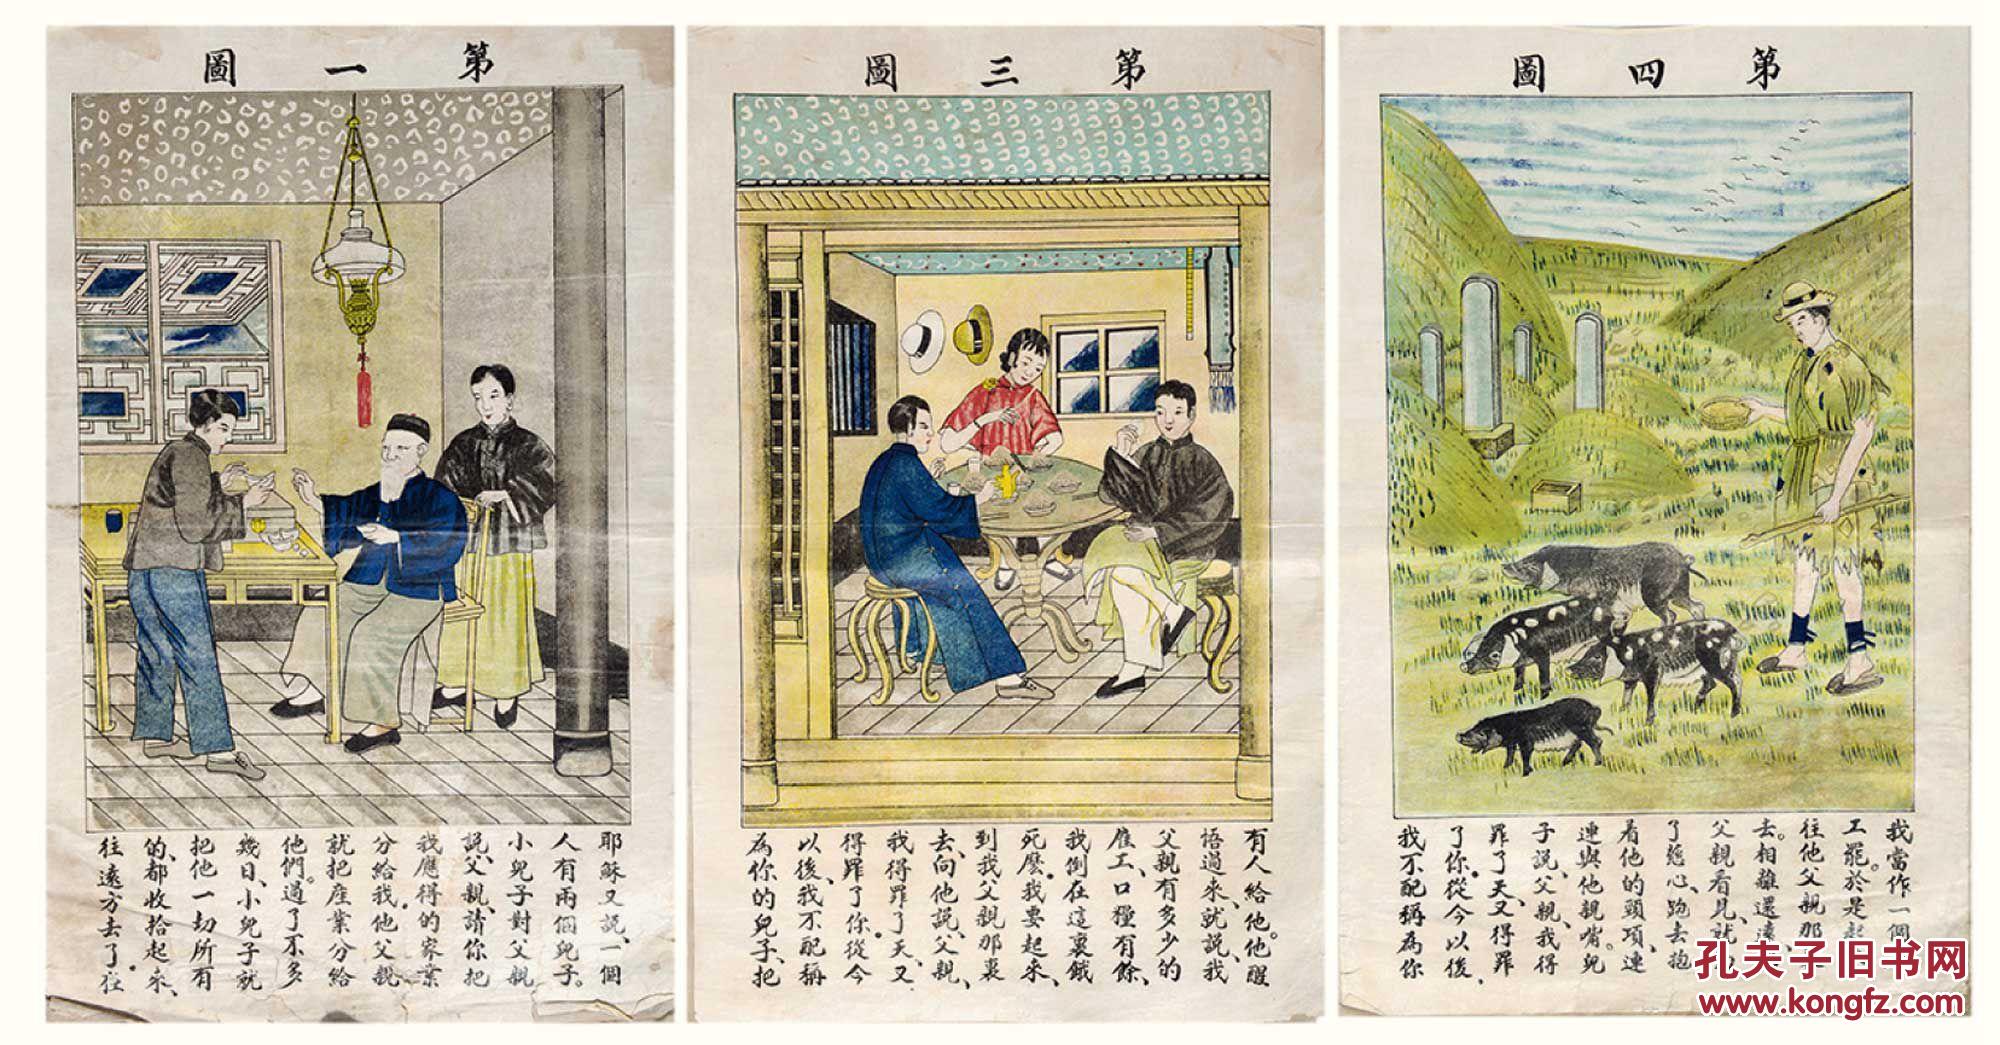 第一圖
耶穌又說、一個
人有兩個兒子。
小兒子對父親
說、父親、請你把
我應得的家業
分給我。他父親
就把產業分給
他們。過了不多
幾日、小兒子就
把他一切所有
的、都收拾起來、
往遠方去了。在
第三圖
有人給他。他醒
悟過來、就說、我
父親有多少的
雇工、口糧有餘、
我倒在這裏餓
死麼。我要起來、
到我父親那裏
去、向他說、父親、
我得罪了天、又
得罪了你。從今
以後、我不配稱
為你的兒子、把
第四圖
我當作一個
工罷。於是起
往他父親那
去。相離還遠、
父親看見、就
了慈心、跑去抱
着他的頸項、連
連與他親嘴。兒
子說、父親、我得
罪了天、又得罪
了你。從今以後、
我不配稱為你
孔夫子旧书网
www.kongfz.com